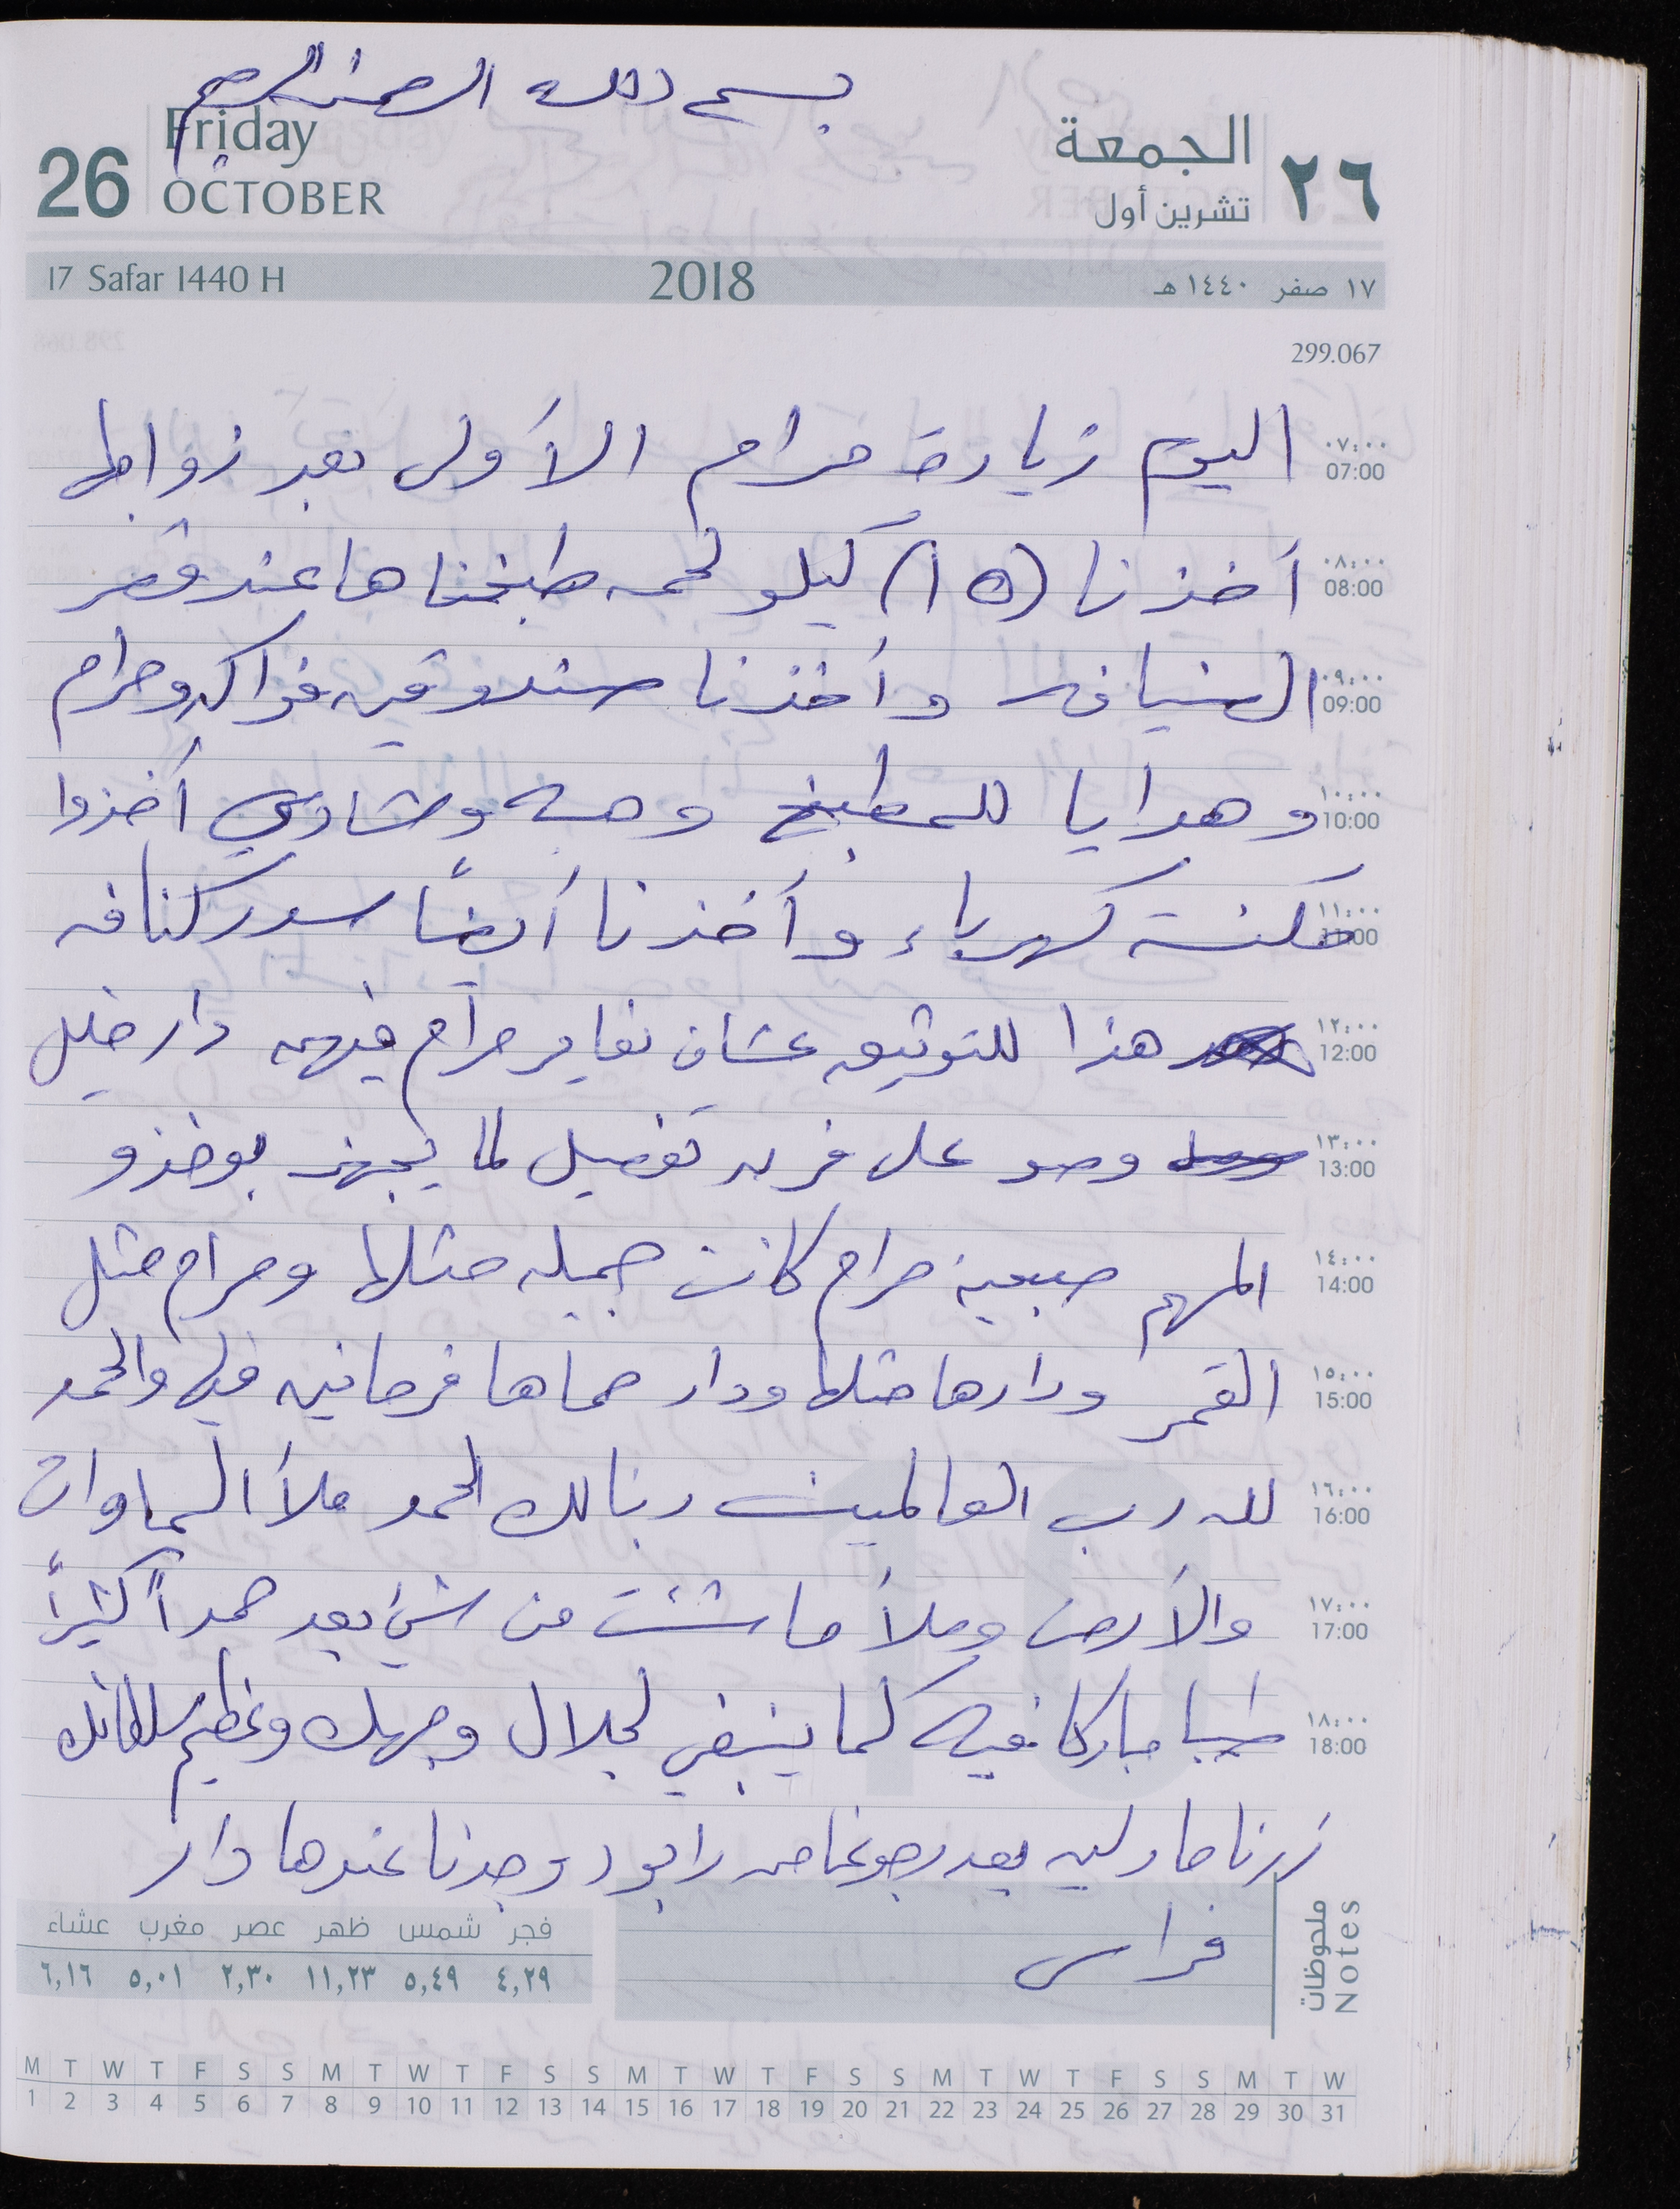 بسم الله الرحمن الرحيم
Friday الجمعة
26 OCTOBER تشرين أول ٢٦
17 Safar 1440 H 2018 ١٧ صفر ١٤٤٠ هـ
299.067
٠٧:٠٠ 07:00 اليوم زيارة مرام الأولى بعد زواجها
٠٨:٠٠ 08:00 أخذنا (١٥) كيلو لحمه طبخناها عند قصر
٠٩:٠٠ 09:00 الضيافه وأخذنا صندوقين فواكه ومرام
١٠:٠٠ 10:00 وهدايا للمطبخ وحسه وشادي أخذوا
١١:٠٠ 11:00 مكنسة كهرباء وأخذنا أيضاً سدر كنافه
١٢:٠٠ 12:00 هذا للتوثيق عشان نعاير مرام فيهم دار خليل
١٣:٠٠ 13:00 وصو على فرمه تفصيل لما يجهز بوخذو
١٤:٠٠ 14:00 المهم صبحية مرام كانت جميله مثلها ومرام مثل
١٥:٠٠ 15:00 القمر ودارها مثلها ودار حماها فرحانين فيها والحمد
١٦:٠٠ 16:00 لله رب العالمين ربنا لك الحمد ملأ السماوات
١٧:٠٠ 17:00 والأرض وملأ ما شئت من شيء بعد حمداً كثيراً
١٨:٠٠ 18:00 طيبا مباركا فيه كما ينبغي لجلال وجهك وعظيم سلطانك
زرنا مادلين بعد رجوعنا من رابود وجدنا عندها دار
فراس
ملحوظات Notes
فجر شمس ظهر عصر مغرب عشاء
٤,٢٩ ٥,٤٩ ١١,٢٣ ٢,٣٠ ٥,٠١ ٦,١٦
M T W T F S S M T W T F S S M T W T F S S M T W T F S S M T W
1 2 3 4 5 6 7 8 9 10 11 12 13 14 15 16 17 18 19 20 21 22 23 24 25 26 27 28 29 30 31